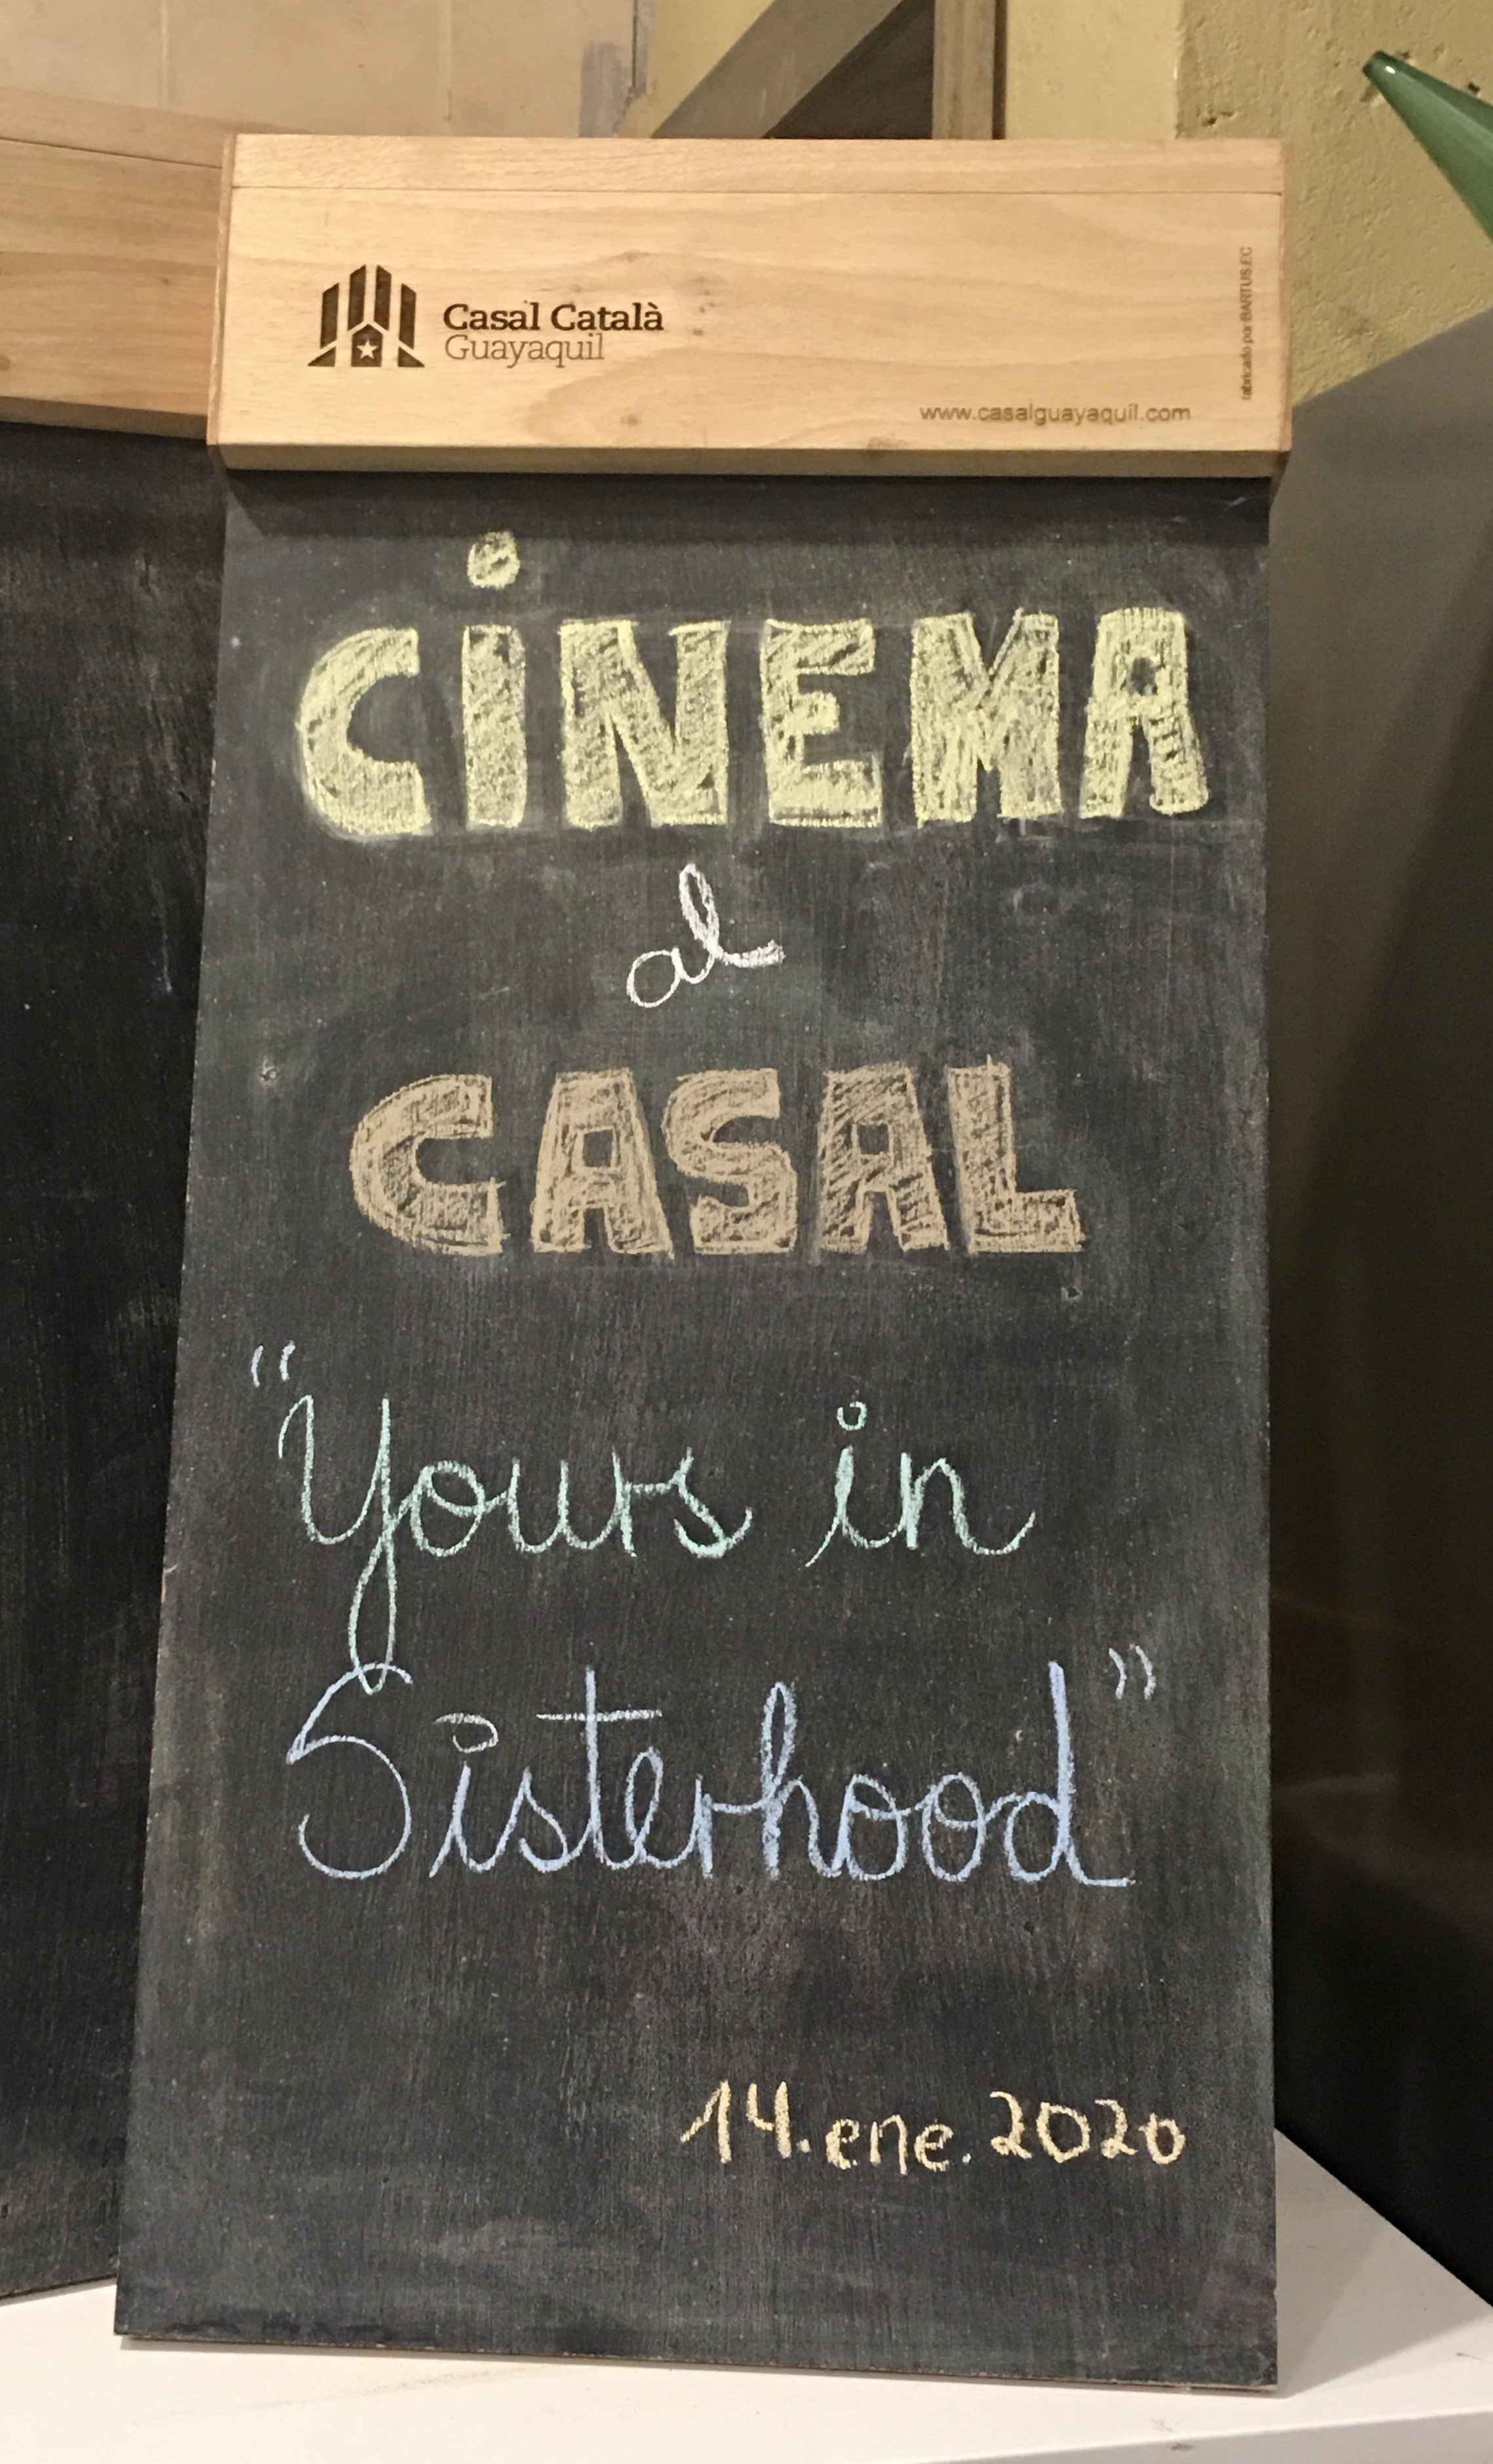 Casal Català
Guayaquil
www.casalguayaquil.com
fabricado por BARTUS.EC
CINEMA
al
CASAL
"Yours in
Sisterhood"
14.ene.2020